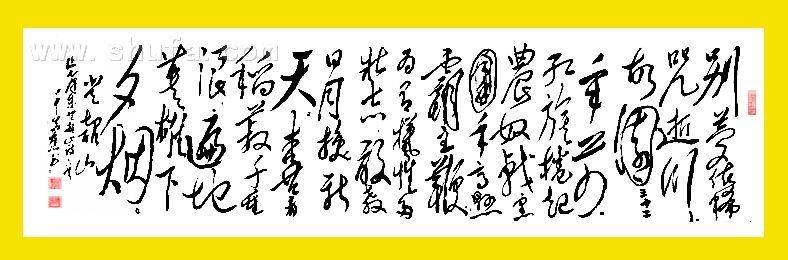 别夢依稀
咒逝川
故園三十二
年前
红旗捲起
農奴戟黑
手高悬
霸主鞭
为有犧牲多
壮志敢教
日月换新
天喜看
稻菽千重
浪遍地
英雄下
夕烟